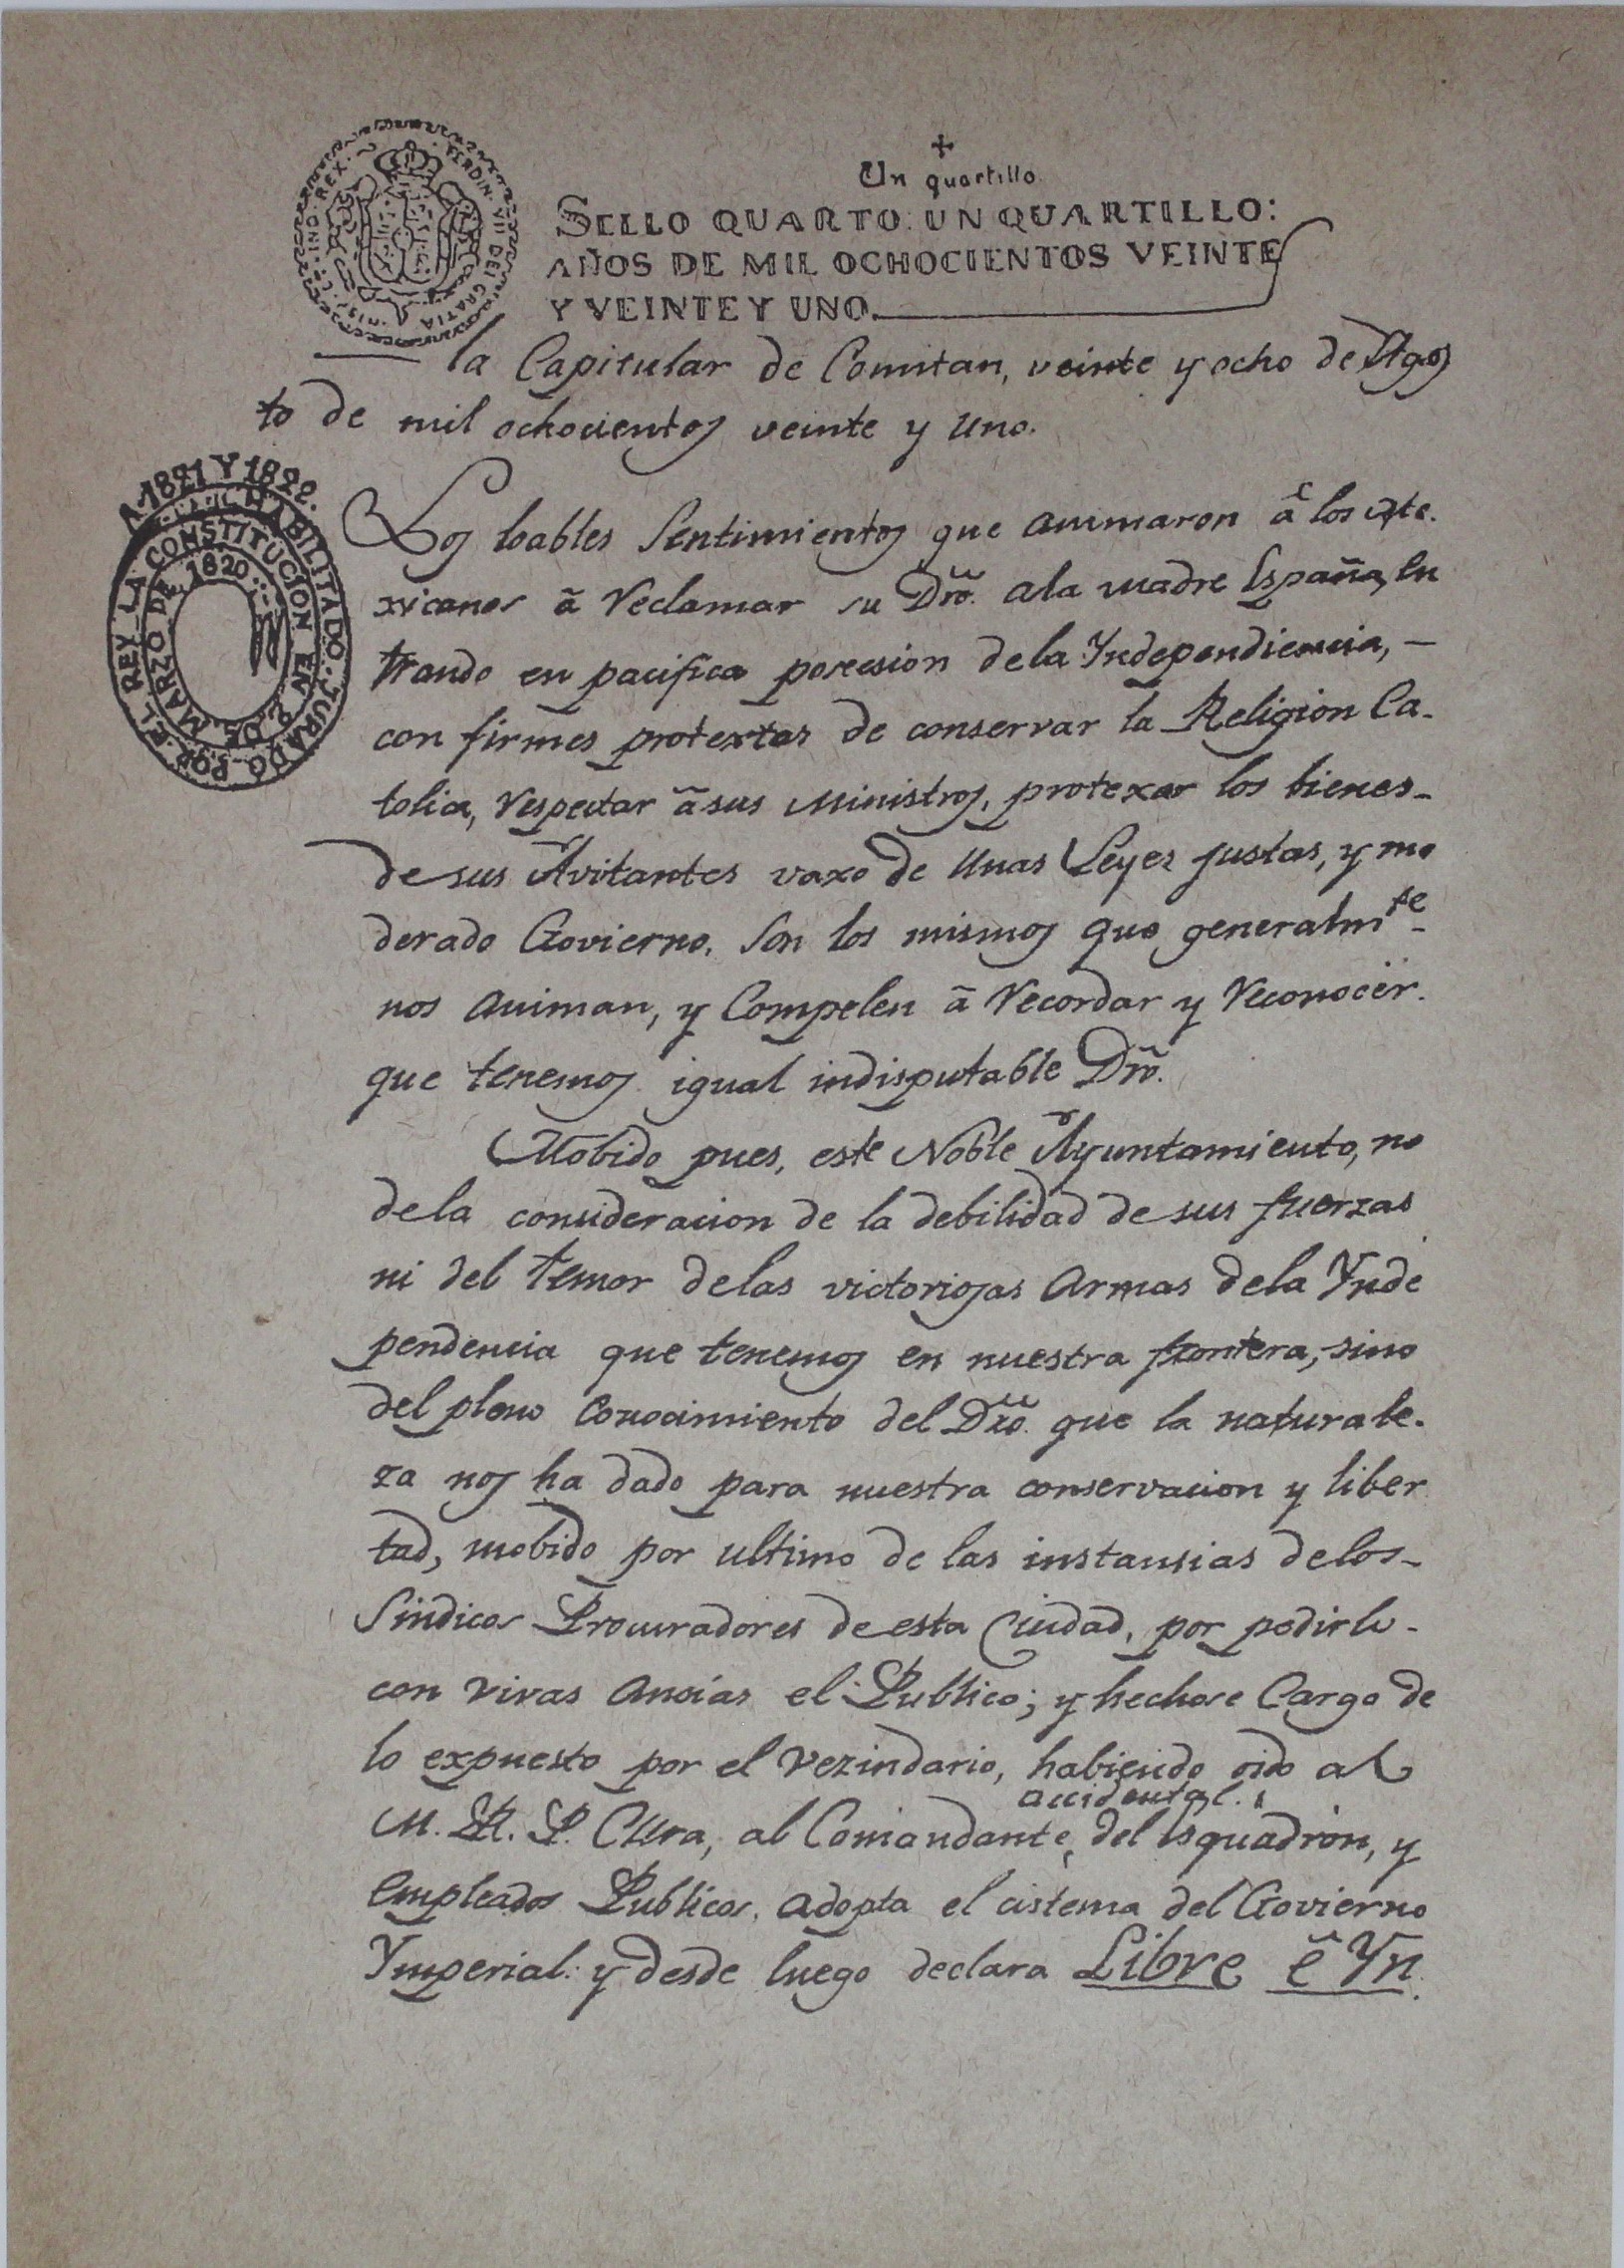 HISP. ET IND. REX. FERDIN. VII DEI GRATIA
Un quartillo
SELLO QUARTO: UN QUARTILLO:
AÑOS DE MIL OCHOCIENTOS VEINTE
Y VEINTE Y UNO.
la Capitular de Comitan, veinte y ocho de Agos
to de mil ochocientos veinte y uno.
A. 1821 Y 1822.
HABILITADO. JURADO POR EL REY LA CONSTITUCION EN 9 DE MARZO DE 1820
Los loables Sentimientos que animaron â los Me.
xicanos ã reclamar su Dro. ala madre España, en
trando en pacifica posecion dela Yndependiencia, —
con firmes protextas de conservar la Religion Ca-
tolica, respectar ã sus Ministros, protexar los bienes-
de sus Avitantes vaxo de unas Leyes justas, y mo
derado Govierno. Son los mismos que generalmte.
nos animan, y Compelen ã recordar y reconocer.
que tenemos igual indisputable Dro.
Mobido pues, este Noble Ayuntamiento, no
dela consideracion de la debilidad de sus fuerzas
ni del temor delas victoriosas Armas dela Ynde
pendencia que tenemos en nuestra frontera, sino
del pleno conocimiento del Dro. que la naturale.
za nos ha dado para nuestra conservacion y liber
tad, mobido por ultimo de las instansias delos-
Sindicos Procuradores de esta Ciudad, por pedirlo-
con vivas ansias el Publico; y hechose Cargo de
lo expuesto por el vezindario, habiendo oido al
accidental.
M. R. P. Cura, al Comandante, del Esquadron, y
Empleados Publicos, adopta el cistema del Govierno
Ymperial: y desde luego declara Libre ê Yn.